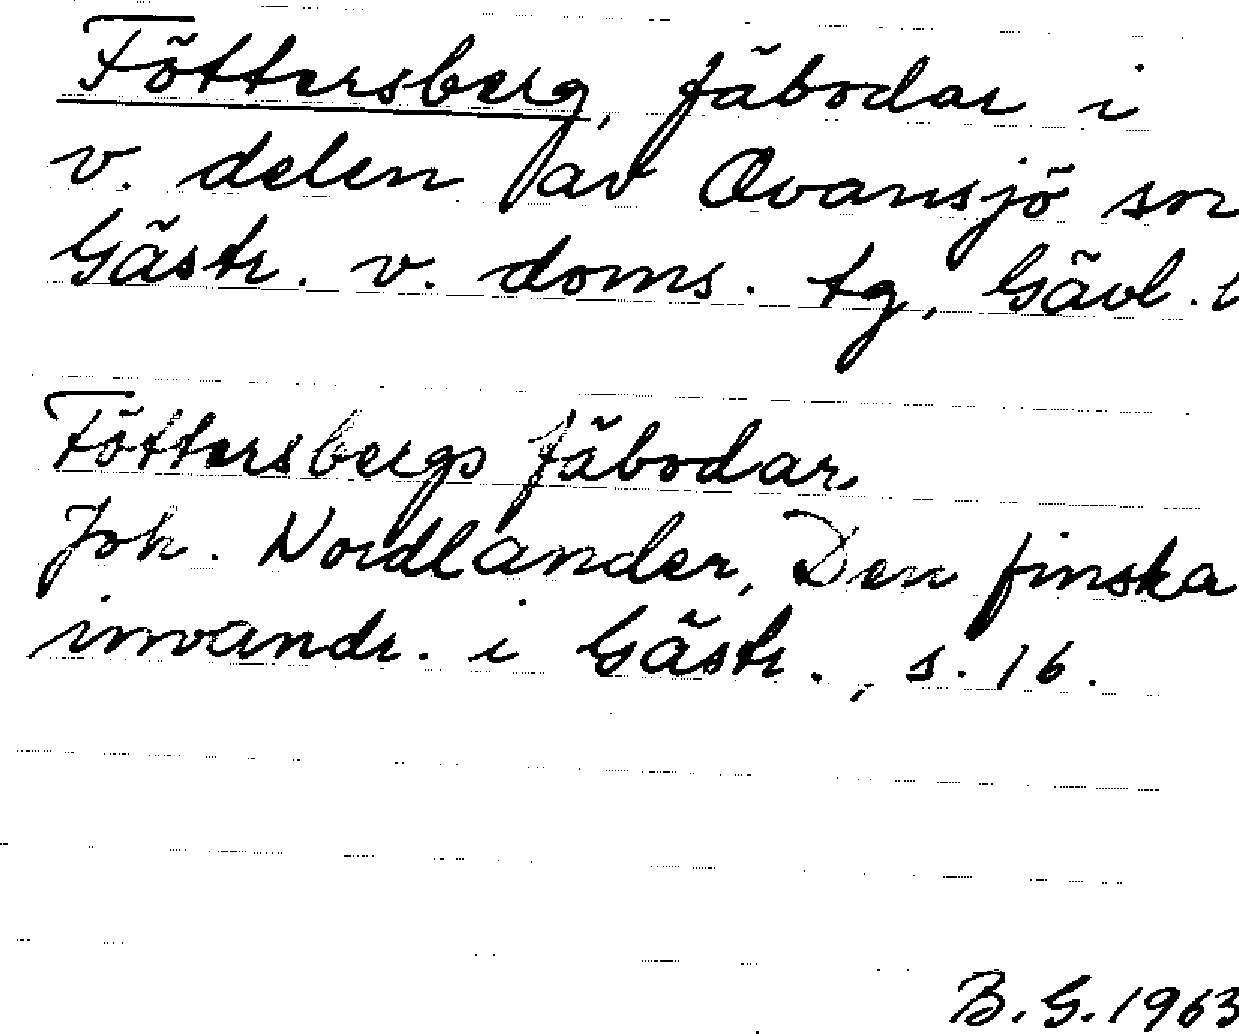 Föttersberg, fäbodar i
v. delen av Ovansjö
Gästr. v. doms. tg, Gävl.
Föttersbergs fäbodar.
Joh. Nordlander, Den finska
invandr. i Gästr., s. 16.
B. G. 1963